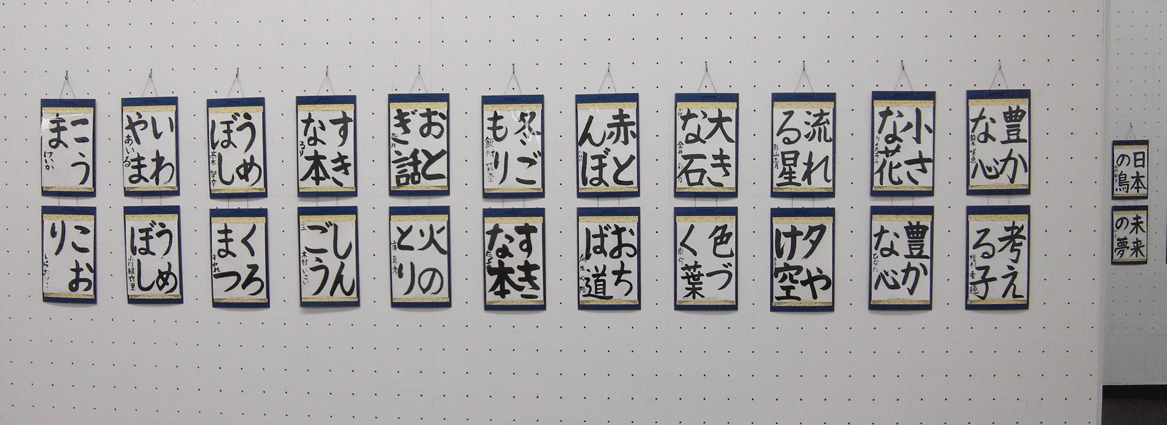 こう
ま
いわ
やま
うめ
ぼし
すき
な本
おと
ぎ話
冬ご
もり
赤と
んぼ
大き
な石
流れ
る星
小さ
な花
豊か
な心
日本
の鳥
こお
り
うめ
ぼし
くろ
まつ
しん
ごう
火の
とり
すき
な本
おち
ば道
色づ
く葉
夕や
け空
豊か
な心
考え
る子
未来
の夢